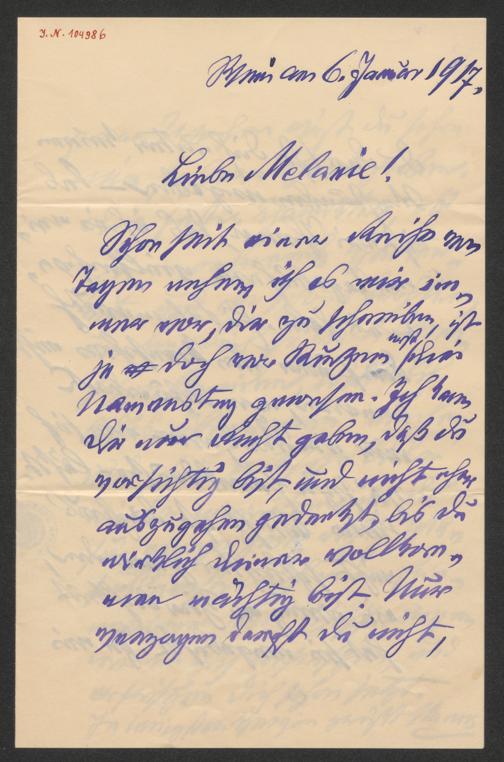 I.N. 104986
Wien am 6. Januar 1917.
Liebe Melanie!
Schon seit einer Reihe von
Tagen nehme ich es mir im-
mer vor, dir zu schreiben, ist
ja doch vor Kurzem erst dein
Namenstag gewesen. Ich kann
dir nur Recht geben, daß du
vorsichtig bist, und nicht eher
auszugehen gedenkst, bis du
wirklich deiner vollkom-
men mächtig bist. Nur
verzagen darfst du nicht,